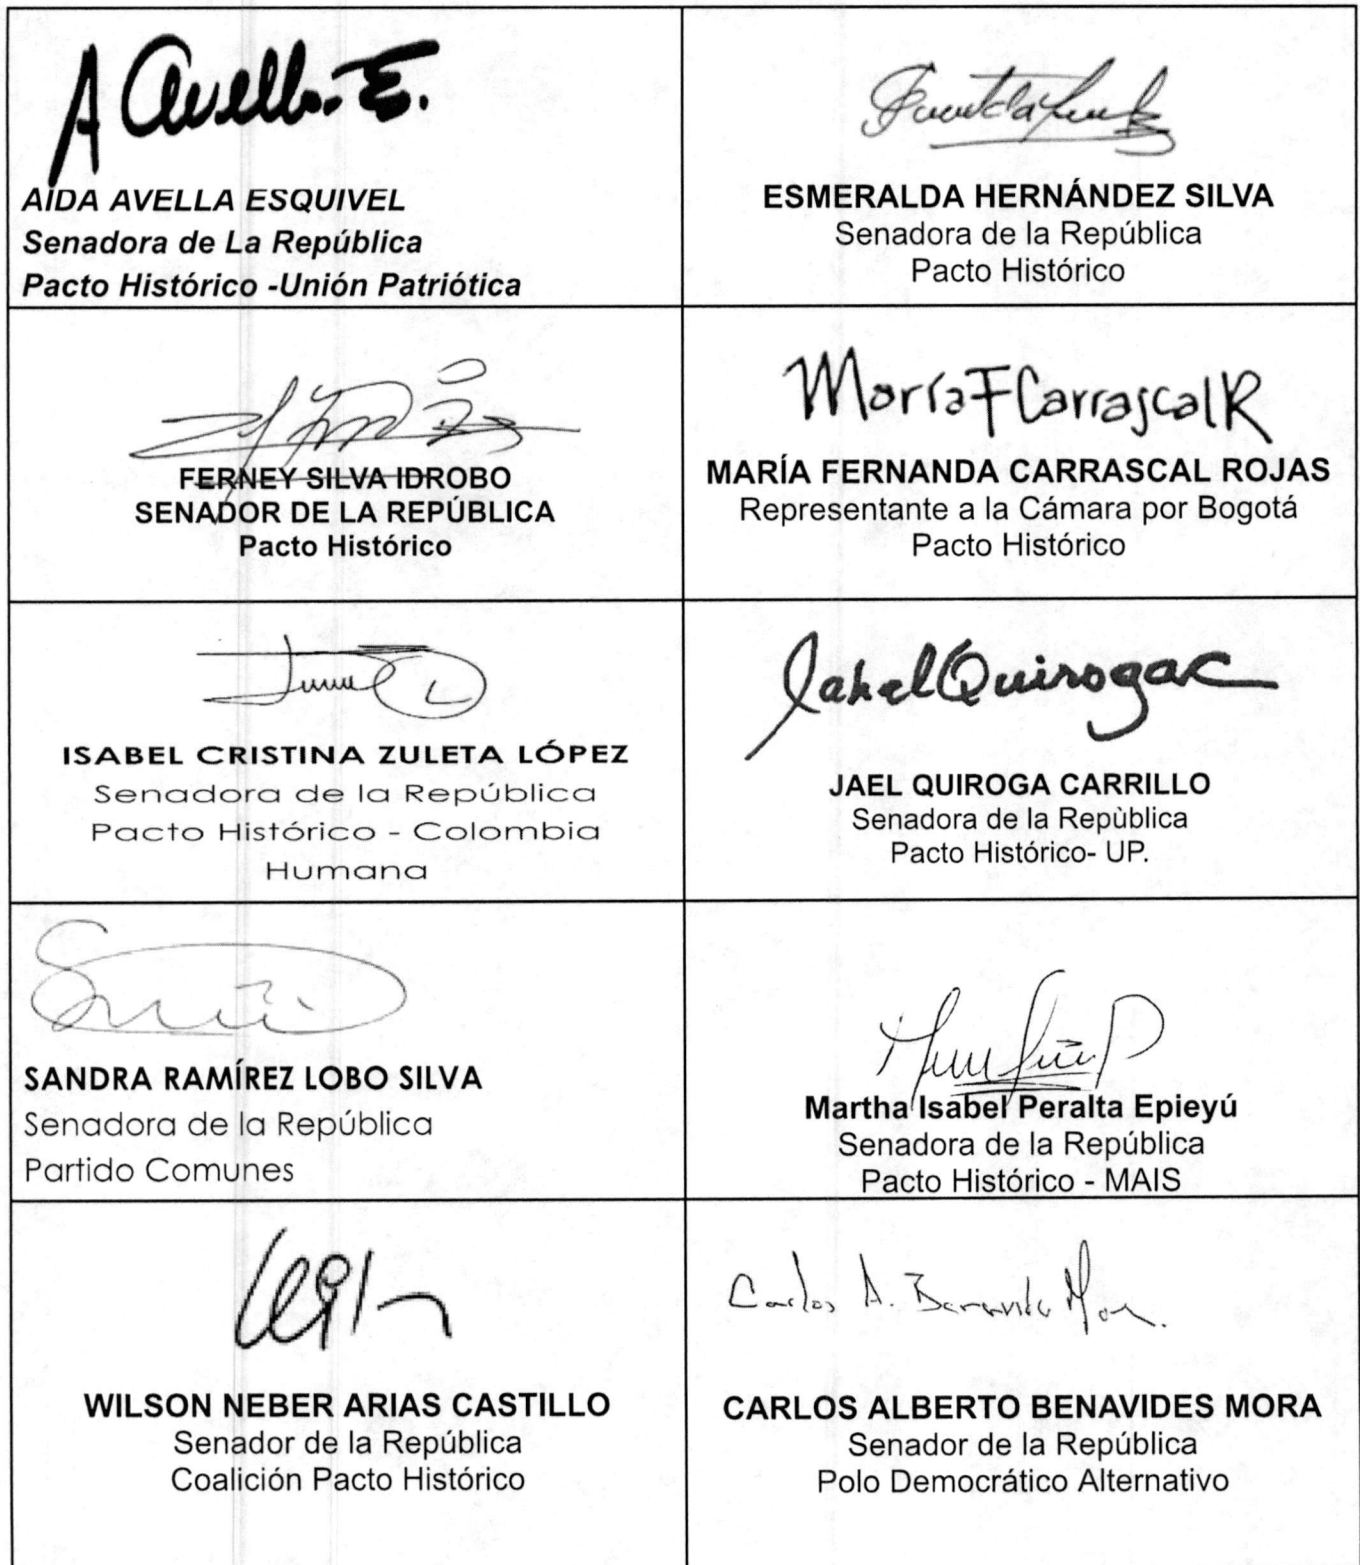 A Avella E.
AÍDA AVELLA ESQUIVEL
Senadora de La República
Pacto Histórico -Unión Patriótica
ESMERALDA HERNÁNDEZ SILVA
Senadora de la República
Pacto Histórico
FERNEY SILVA IDROBO
SENADOR DE LA REPÚBLICA
Pacto Histórico
María F Carrascal R
MARÍA FERNANDA CARRASCAL ROJAS
Representante a la Cámara por Bogotá
Pacto Histórico
ISABEL CRISTINA ZULETA LÓPEZ
Senadora de la República
Pacto Histórico - Colombia
Humana
Jahel Quiroga C
JAEL QUIROGA CARRILLO
Senadora de la Repùblica
Pacto Histórico- UP.
SANDRA RAMÍREZ LOBO SILVA
Senadora de la República
Partido Comunes
Martha Isabel Peralta Epieyú
Senadora de la República
Pacto Histórico - MAIS
WILSON NEBER ARIAS CASTILLO
Senador de la República
Coalición Pacto Histórico
Carlos A. Benavides Mora.
CARLOS ALBERTO BENAVIDES MORA
Senador de la República
Polo Democrático Alternativo